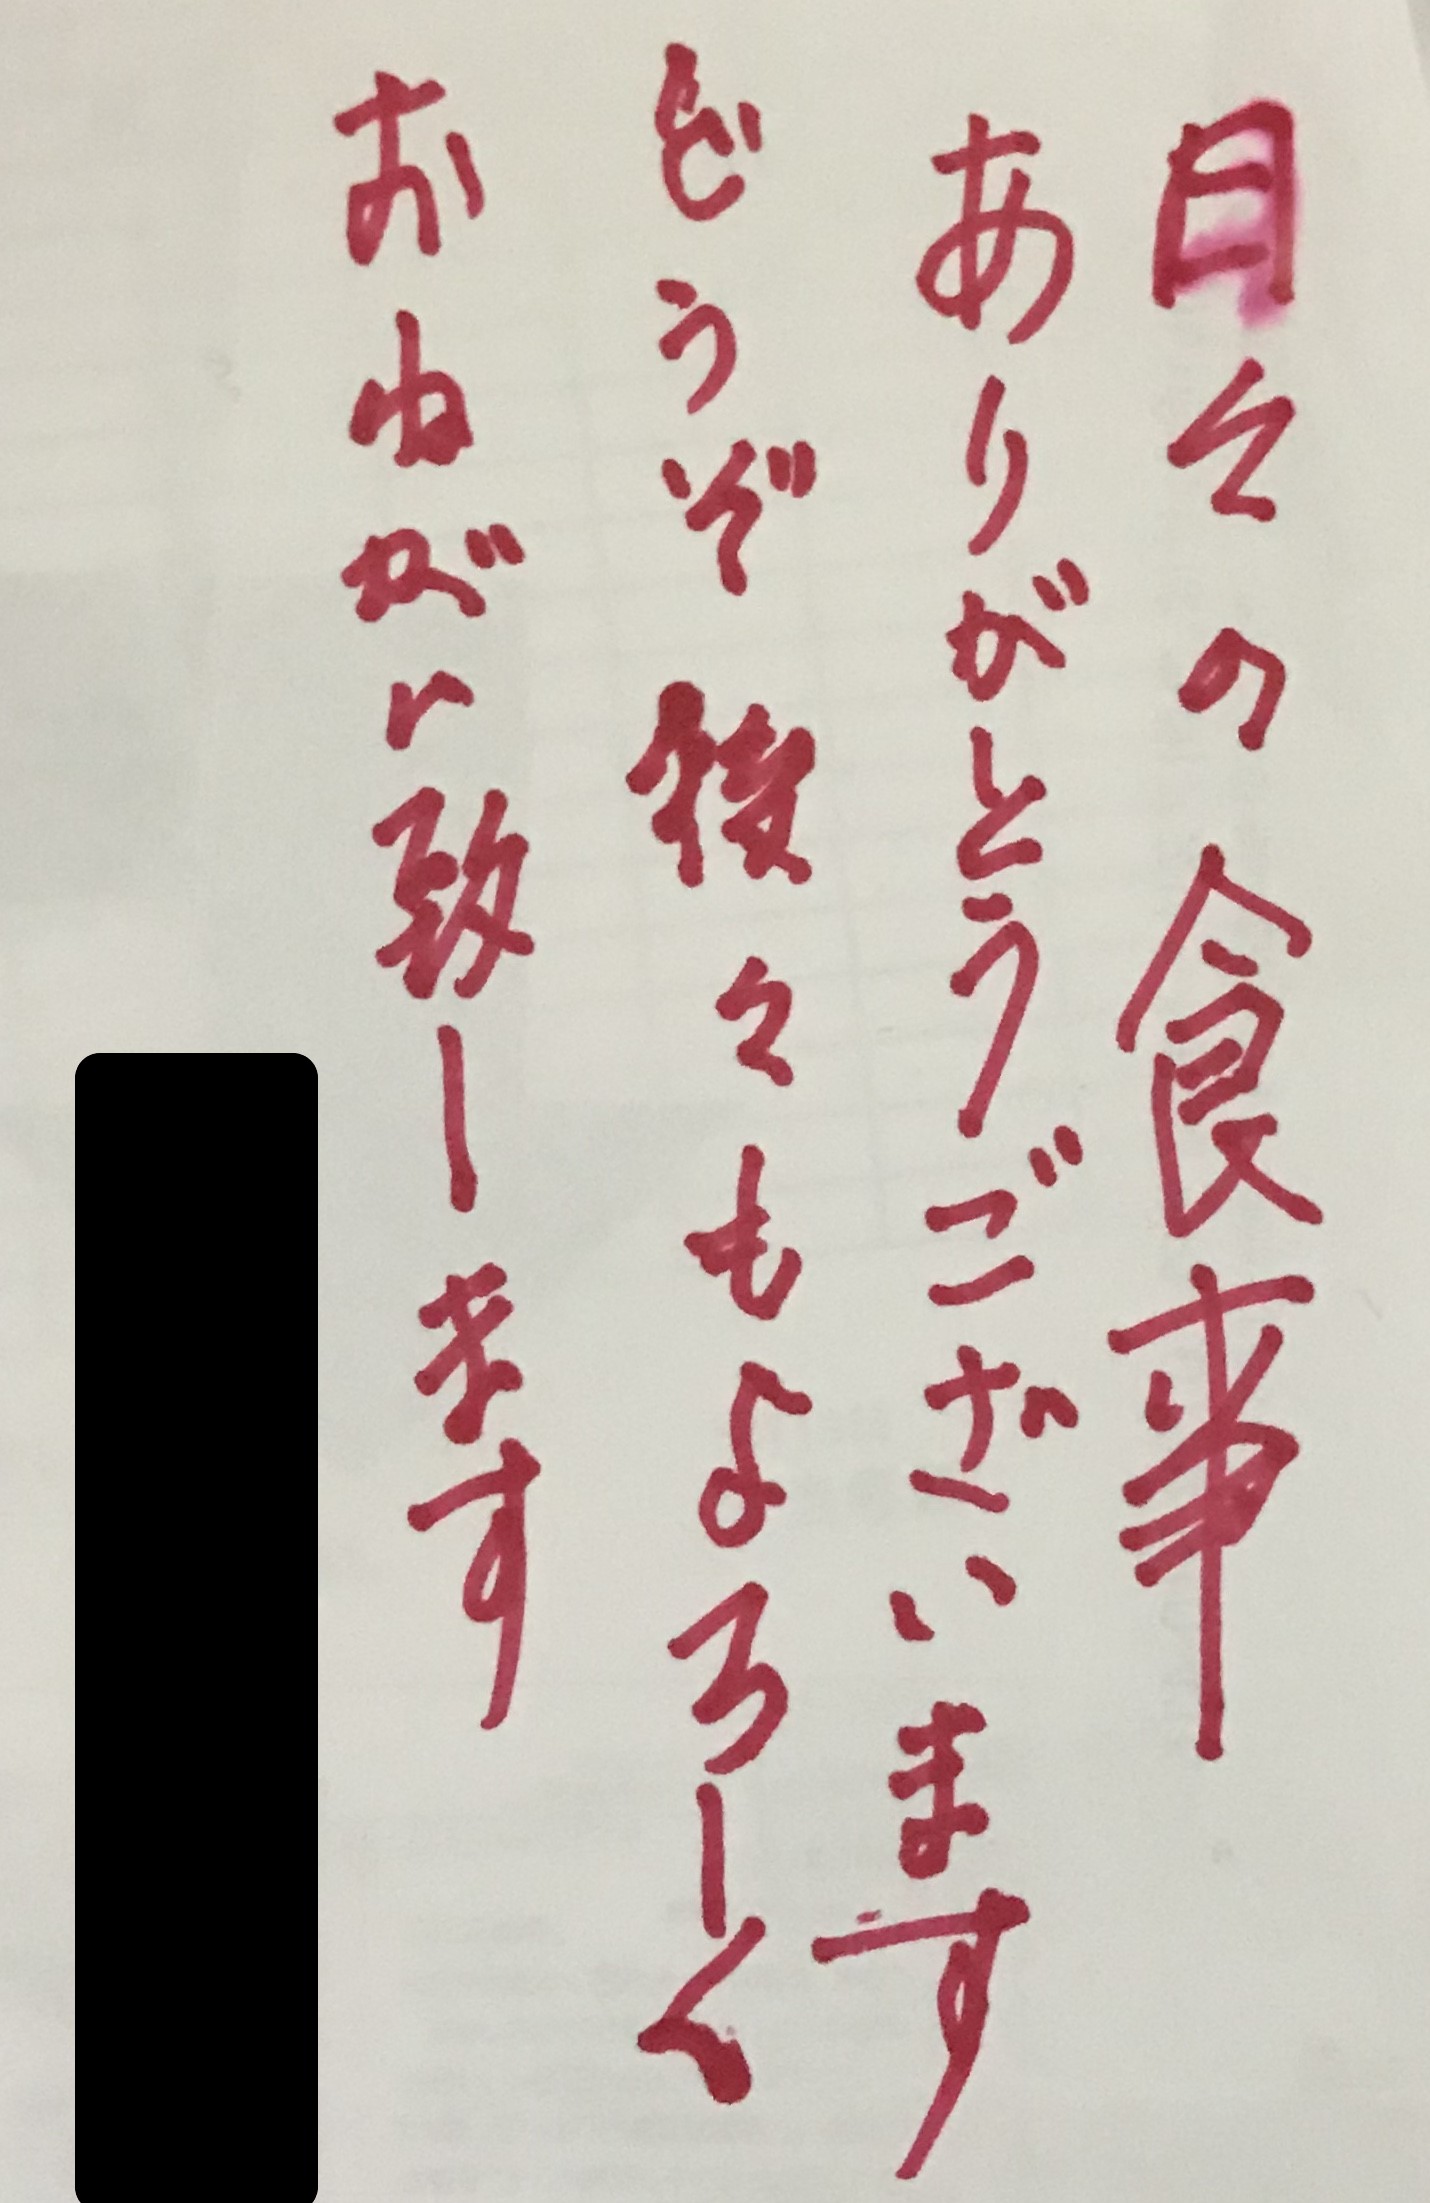 日々の食事
ありがとうございます
どうぞ後々もよろしく
おねがい致します